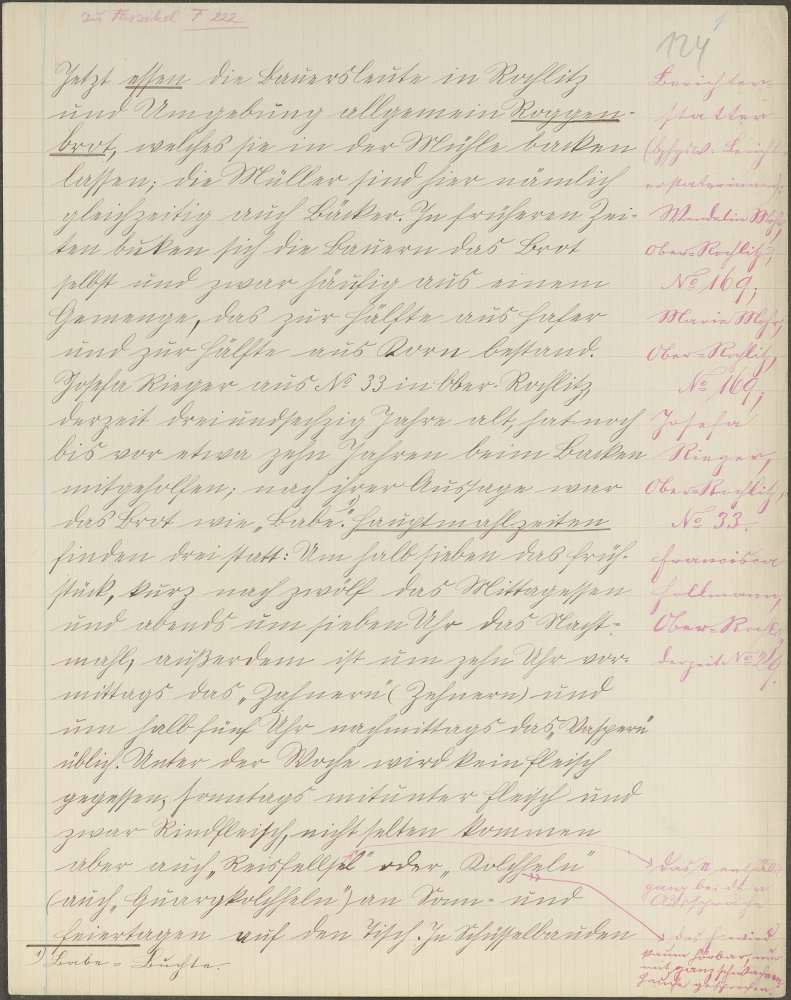 zu Faszikel F 222
124
Jetzt essen die Bauersleute in Rochlitz
und Umgebung allgemein Roggen-
brot, welches sie in der Mühle backen
lassen; die Müller sind hier nämlich
gleichzeitig auch Bäcker. In früheren Zei-
ten buken sich die Bauern das Brot
selbst und zwar häufig aus einem
Gemenge, das zur Hälfte aus Hafer
und zur Hälfte aus Korn bestand.
Josefa Rieger aus No 33 in Ober-Rochlitz,
derzeit dreiundsechzig Jahre alt, hat noch
bis vor etwa zehn Jahren beim Backen
mitgeholfen; nach ihrer Aussage war
das Brot wie „Babe“. 1) Hauptmahlzeiten
finden drei statt: Um halb sieben das Früh-
stück, kurz nach zwölf das Mittagessen
und abends um sieben Uhr das Nacht-
mahl, außerdem ist um zehn Uhr vor-
mittags das „Zahnern“ (Zehnern) und
um halb fünf Uhr nachmittags das „Vaspern“
üblich. Unter der Woche wird kein Fleisch
gegessen, sonntags mitunter Fleisch und
zwar Rindfleisch, nicht selten kommen
aber auch „Reisfellsel“ oder „Kolchheln“
(auch „Quargkolchheln“) an Sonn- und
Feiertagen auf den Tisch. In Schüsselbauden
1) Babe = Buchte.
Berichter-
statter
(bzhgsw. Bericht-
erstatterinnen):
Wendelin Mohr,
Ober-Rochlitz,
No 169;
Marie Mohr,
Ober-Rochlitz,
No 169;
Josefa
Rieger,
Ober-Rochlitz,
No 33.
Francisca
Hollmann,
Ober-Rochl.,
derzeit No 29.
Das
ganz bei der
Aussprache
das h wird
kaum hörbar, nur
mit ganz schwachem
Hauche gesprochen.